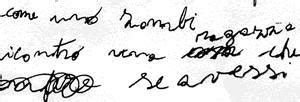 come uno zombi
ragazza
icontro vena cosa che
se avessi